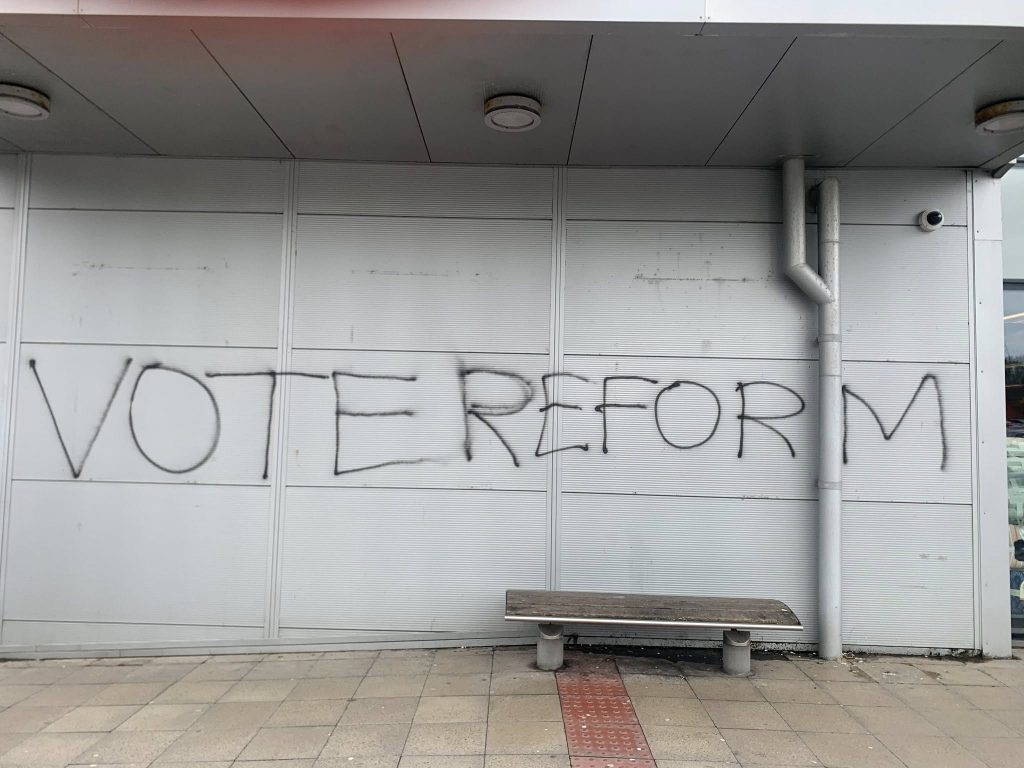 VOTE REFORM